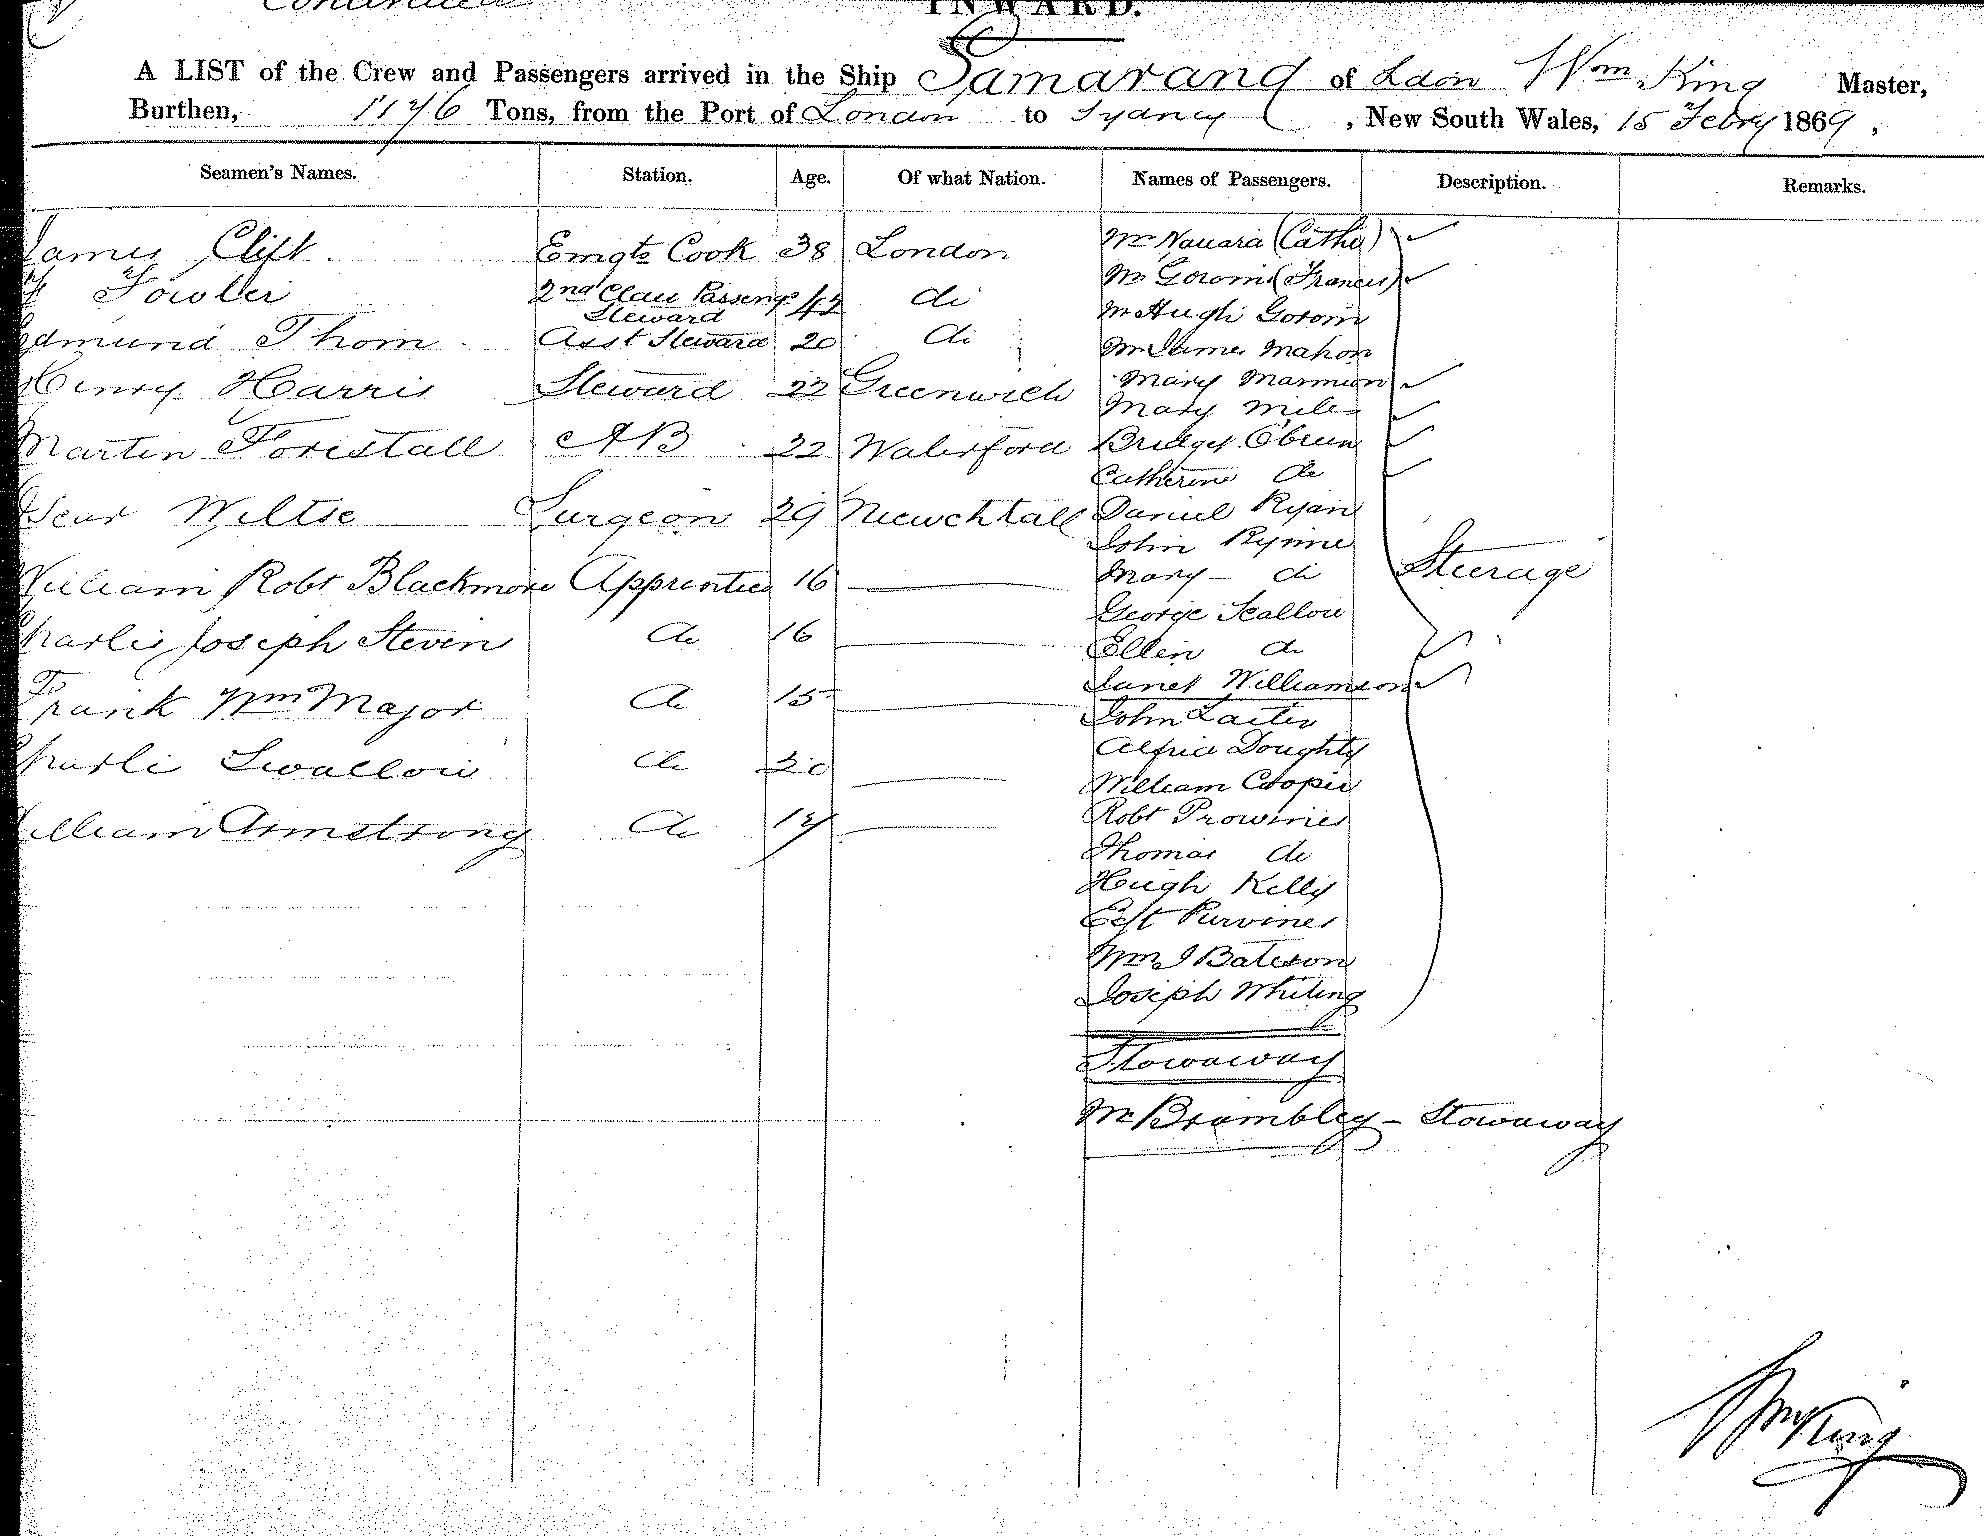 Continued
INWARD.
A LIST of the Crew and Passengers arrived in the Ship Samarang of Ldon Wm King Master,
Burthen, 1176 Tons, from the Port of London to Sydney, New South Wales, 15 Febry 1869.
Seamen's Names. Station. Age. Of what Nation. Names of Passengers. Description. Remarks.
James Clift Emgts Cook 38 London
Fowler 2nd Class Passengr Steward 42 do
Edmund Thom Asst Steward 20 do
Henry Harris Steward 22 Greenwich
Martin Forestall AB 22 Waterford
Oscar Wiltse Surgeon 29
William Robt Blackmore Apprentice 16
Charles Joseph Steven do 16
Frank Wm Major do 15
Charles Swallow do 20
William Armstrong do 17
Mr (Cathe)
Mr Gorom (Frances)
Mr Hugh Gorom
Mr James Mahon
Mary Marmion
Mary Miles
Bridget O'Brien
Catherine do
Daniel Ryan
John Rynne
Mary - do
George Scallon
Ellen do
Janet Williamson
John
Alfred Doughty
William Cooper
Robt
Thomas do
Hugh Kelly
Purvines
Wm J Bateson
Joseph Whiting
Steerage
Stowaway
Mr Brambley - Stowaway
Wm King